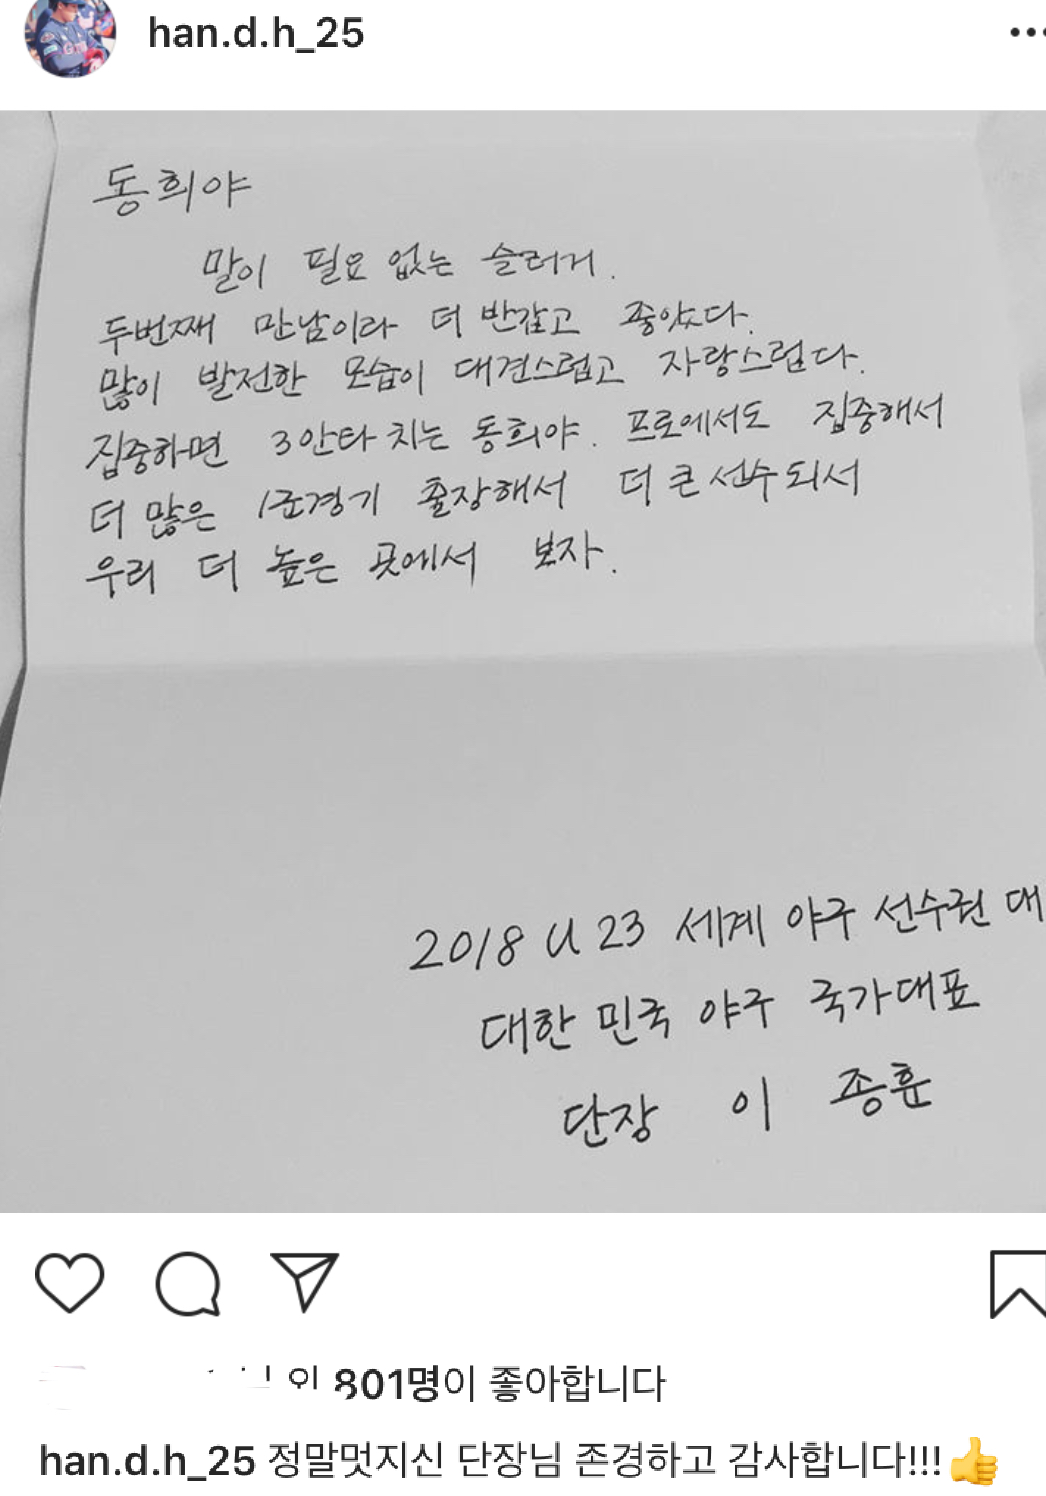 han.d.h_25
동희야
말이 필요 없는 슬러거.
두번째 만남이라 더 반갑고 좋았다.
많이 발전한 모습이 대견스럽고 자랑스럽다.
집중하면 3안타 치는 동희야. 프로에서도 집중해서
더 많은 1군경기 출장해서 더 큰 선수되서
우리 더 높은 곳에서 보자.
2018 U 23 세계 야구 선수권 대
대한민국 야구 국가대표
단장 이 종훈
외 801명이 좋아합니다
han.d.h_25 정말멋지신 단장님 존경하고 감사합니다!!!👍